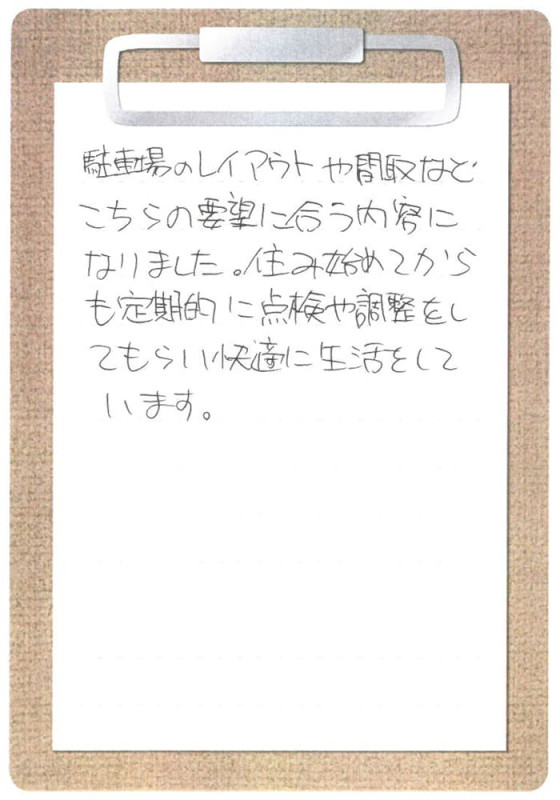 駐車場のレイアウトや間取など
こちらの要望に合う内容に
なりました。住み始めてから
も定期的に点検や調整をし
てもらい快適に生活をして
います。